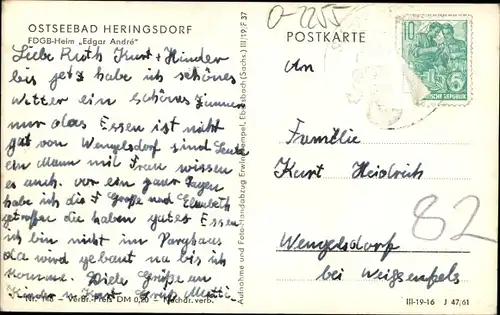 OSTSEEBAD HERINGSDORF
FDGB-Heim „Edgar André"
Liebe Ruth Kurt + Kinder
bis jetz habe ich schönes
wetter ein schönes Zimmer
nur das Essen ist nicht
gut von Wengelsdorf sind Leute
ein Mann mit Frau wissen
es auch. vor ein paar Tagen
habe ich die F Große und Elisabeth
getroffen die haben gutes Essen
ich bin nicht im
da wird gebaut na bis ich
komme. Viele Grüße an
Kinder u. Kurt Gruß Mutti
Nr. 146 – Verbr.-Preis DM 0,20 – Nachdr. verb.
Aufnahme und Foto-Handabzug Erwin Hempel, Ebersbach (Sachs.) III/19/F 37
0-2255
POSTKARTE
An
10
6
SCHE REPUBLIK
Familie
Kurt Heidrich
82
Wengelsdorf
bei Weißenfels
III-19-16 J 47/61